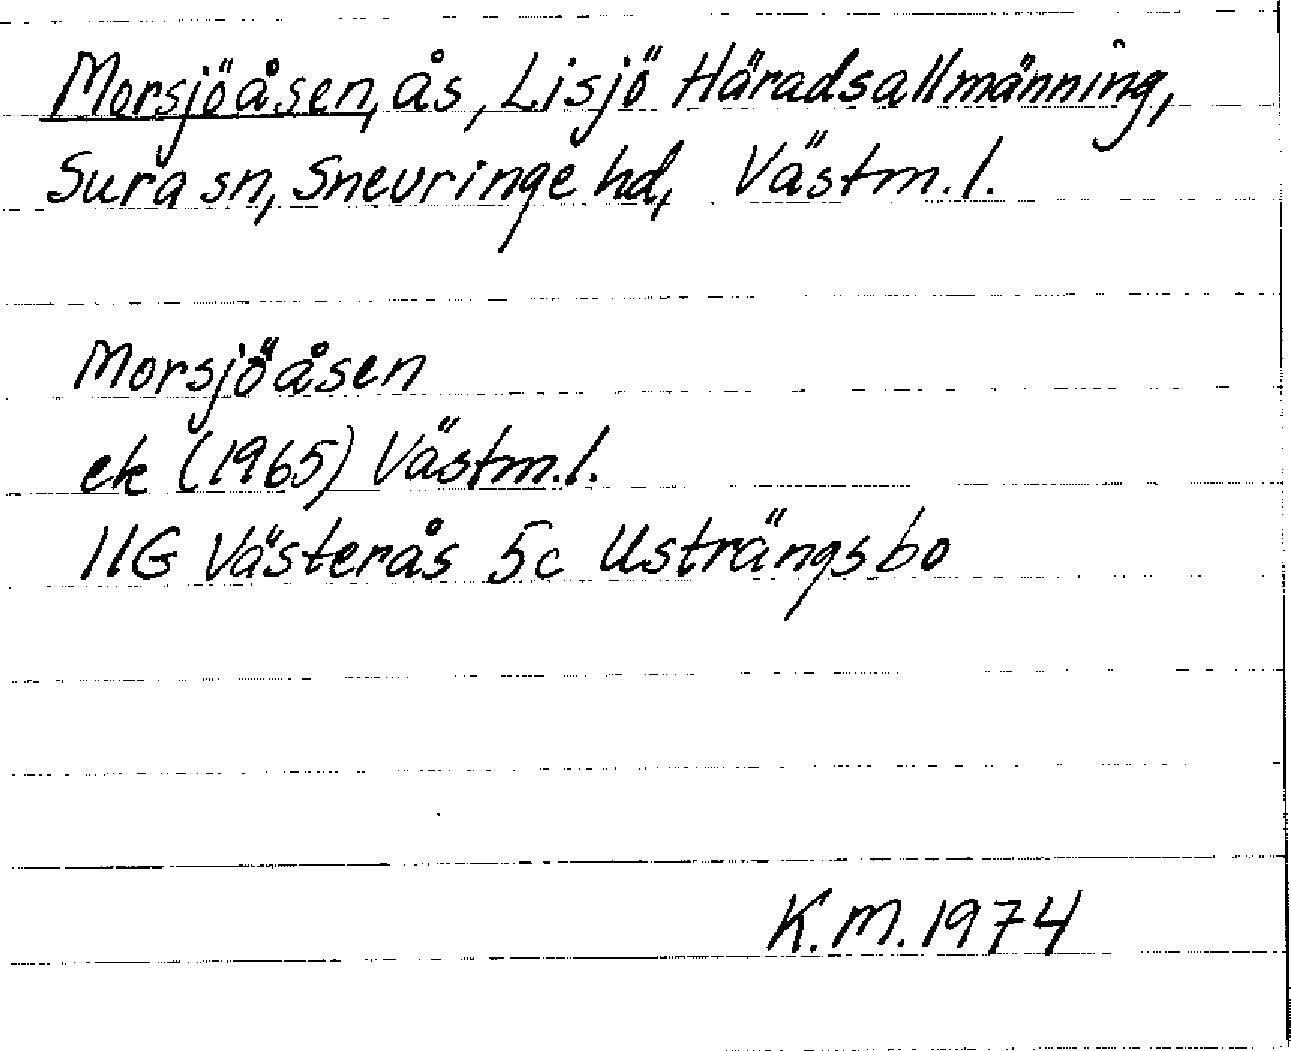 Morsjöåsen, ås, Lisjö Häradsallmänning,
Sura sn, Snevringe hd, Västm. l.
Morsjöåsen
ek (1965) Västm. l.
11G Västerås 5c Usträngsbo
K.M. 1974